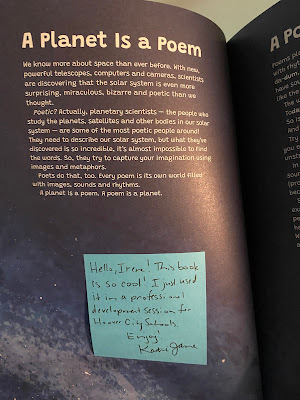 A Planet Is a Poem
We know more about space than ever before. With new,
powerful telescopes, computers and cameras, scientists
are discovering that the solar system is even more
surprising, miraculous, bizarre and poetic than we
thought.
Poetic? Actually, planetary scientists — the people who
study the planets, satellites and other bodies in our solar
system — are some of the most poetic people around!
They need to describe our solar system, but what they've
discovered is so incredible, it's almost impossible to find
the words. So, they try to capture your imagination using
images and metaphors.
Poets do that, too. Every poem is its own world filled
with images, sounds and rhythms.
A planet is a poem. A poem is a planet.
Hello, Irene! This book
is so cool! I just used
it in a professional
development session for
Hoover City Schools.
Enjoy!
Kadie Jane
A Po
Poems pl
with rhy
as-dum
have s
like the
The
Today
is so i
And
Try
you
unst
In
sour
(pro
bec
S